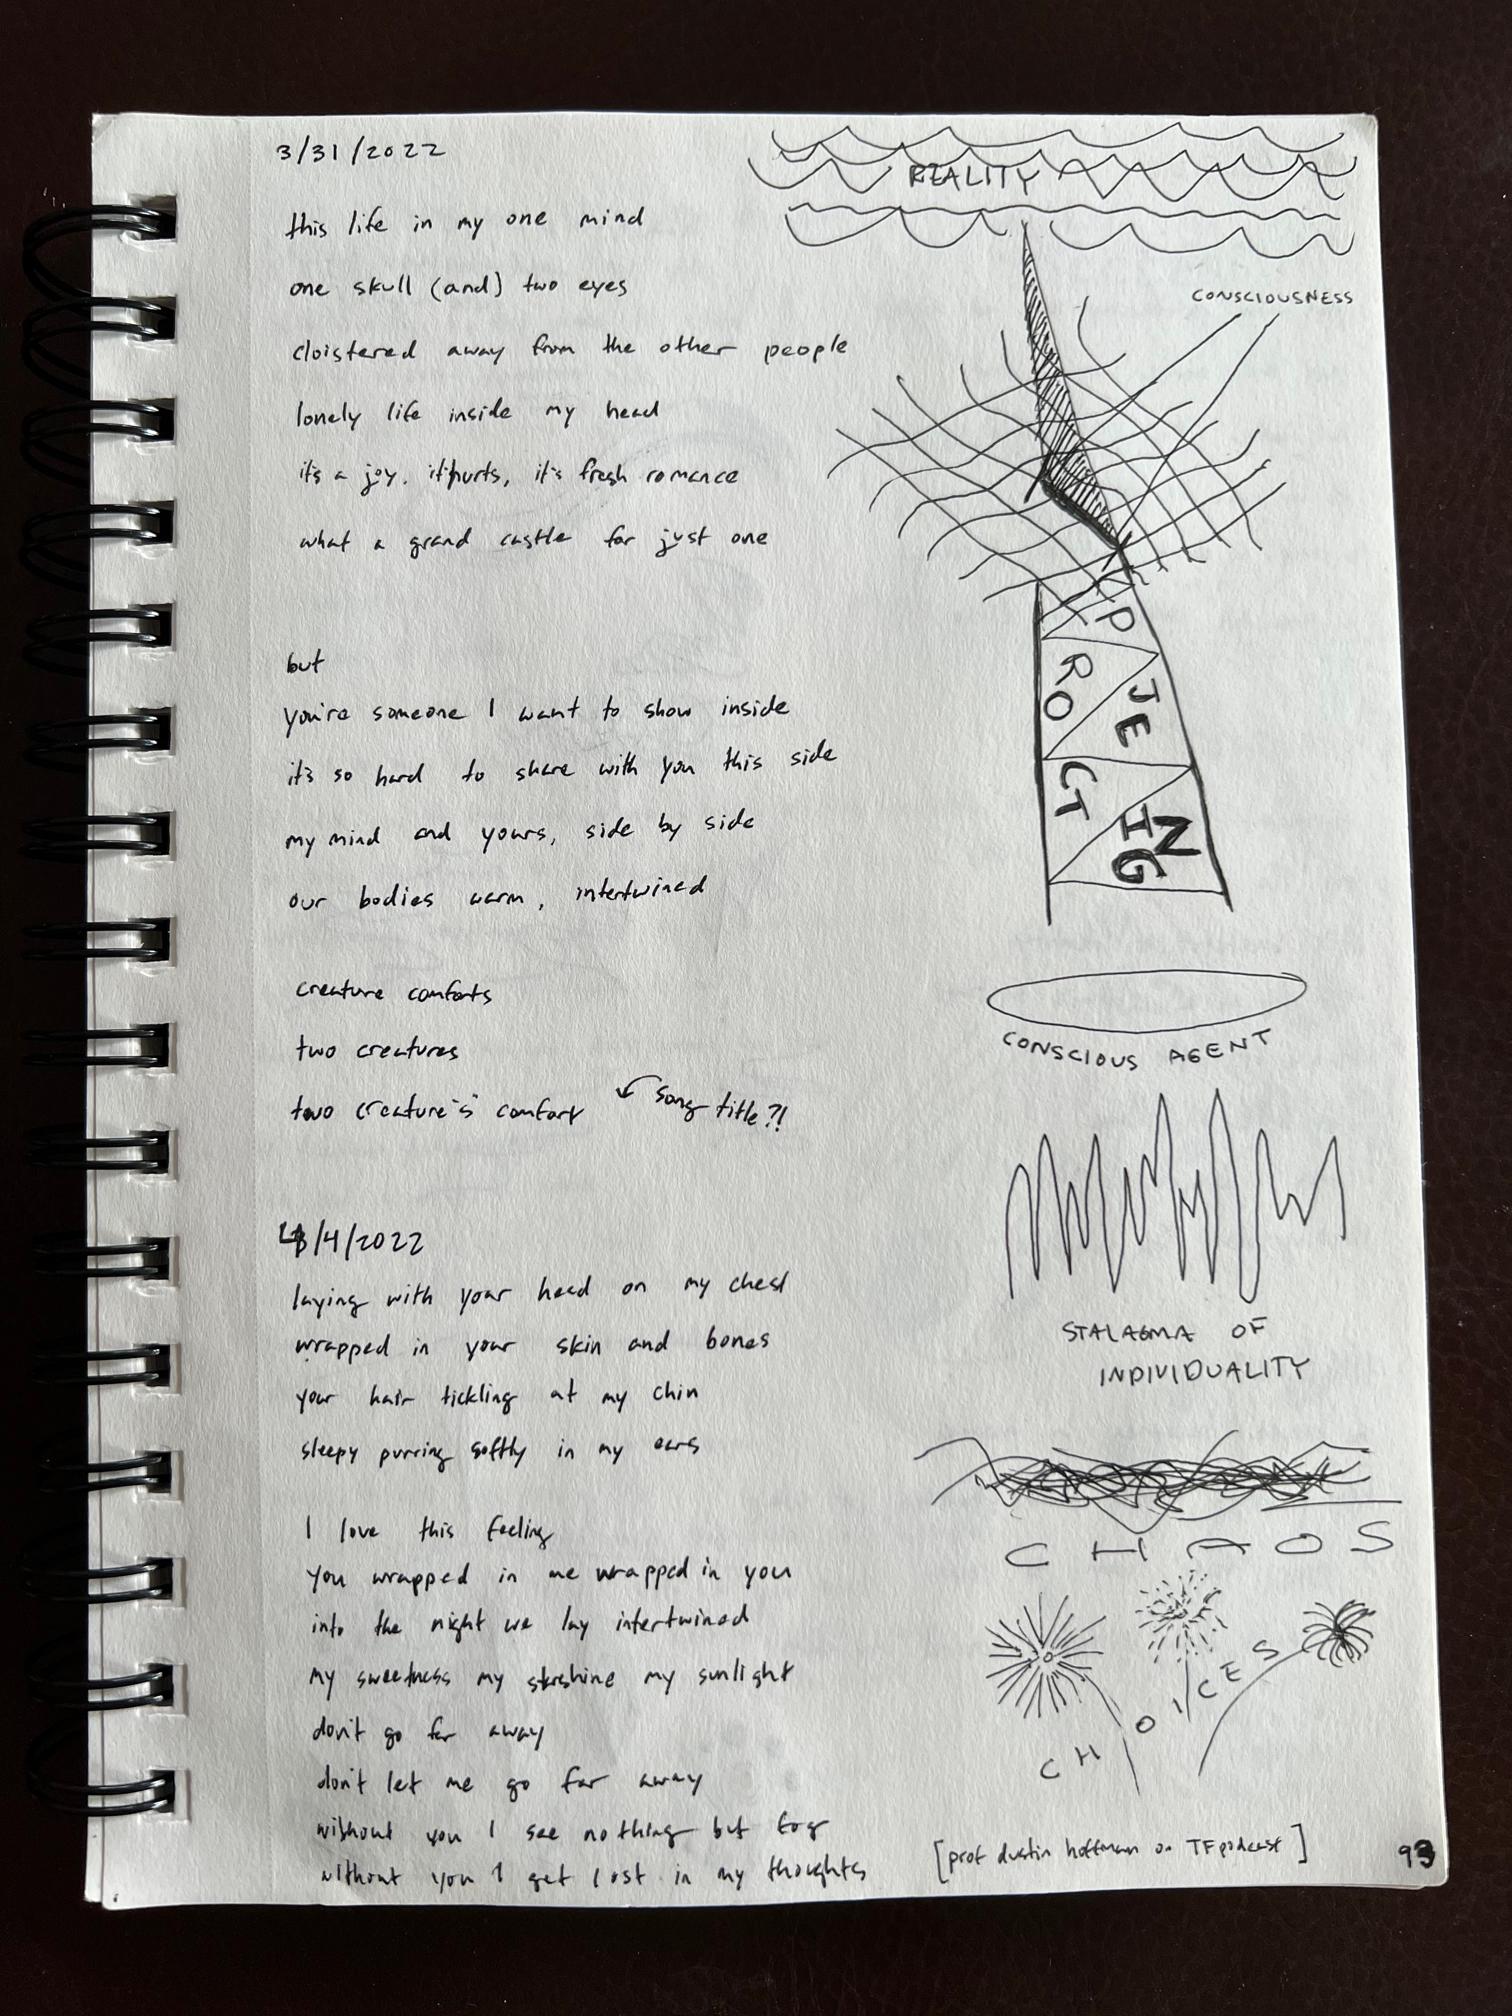 3/31/2022
this life in my one mind
one skull (and) two eyes
cloistered away from the other people
lonely life inside my head
it's a joy, it hurts, it's fresh romance
what a grand castle for just one
but
you're someone I want to show inside
it's so hard to share with you this side
my mind and yours, side by side
our bodies warm, intertwined
creature comforts
two creatures
two creature's' comfort
song title?!
4/4/2022
laying with your head on my chest
wrapped in your skin and bones
your hair tickling at my chin
sleepy purring softly in my ears
I love this feeling
you wrapped in me wrapped in you
into the night we lay intertwined
my sweetness my starshine my sunlight
don't go far away
don't let me go far away
without you I see nothing but fog
without you I get lost in my thoughts
REALITY
CONSCIOUSNESS
PROJECTING
CONSCIOUS AGENT
STALAGMA OF
INDIVIDUALITY
CHAOS
CHOICES
[prof dustin hoffman on TF podcast]
93